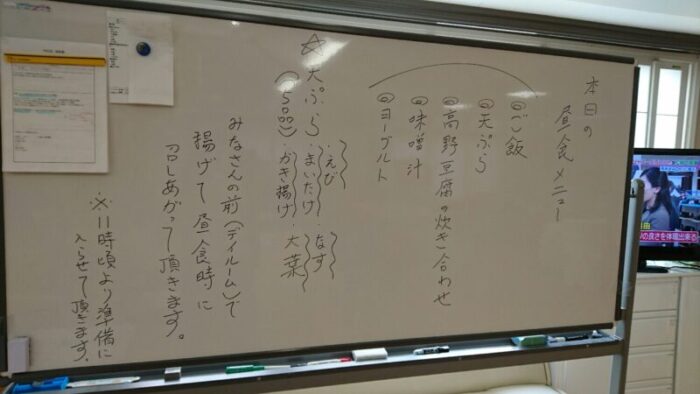 本日の
昼食メニュー
◎ご飯
◎天ぷら
◎高野豆腐の炊き合わせ
◎味噌汁
◎ヨーグルト
☆天ぷら
(5品)
・えび
・まいたけ
・かき揚げ
・なす
・大葉
みなさんの前(デイルーム)で
揚げて昼食時に
召しあがって頂きます。
※11時頃より準備に
入らせて頂きます。
の良さを体現出来る